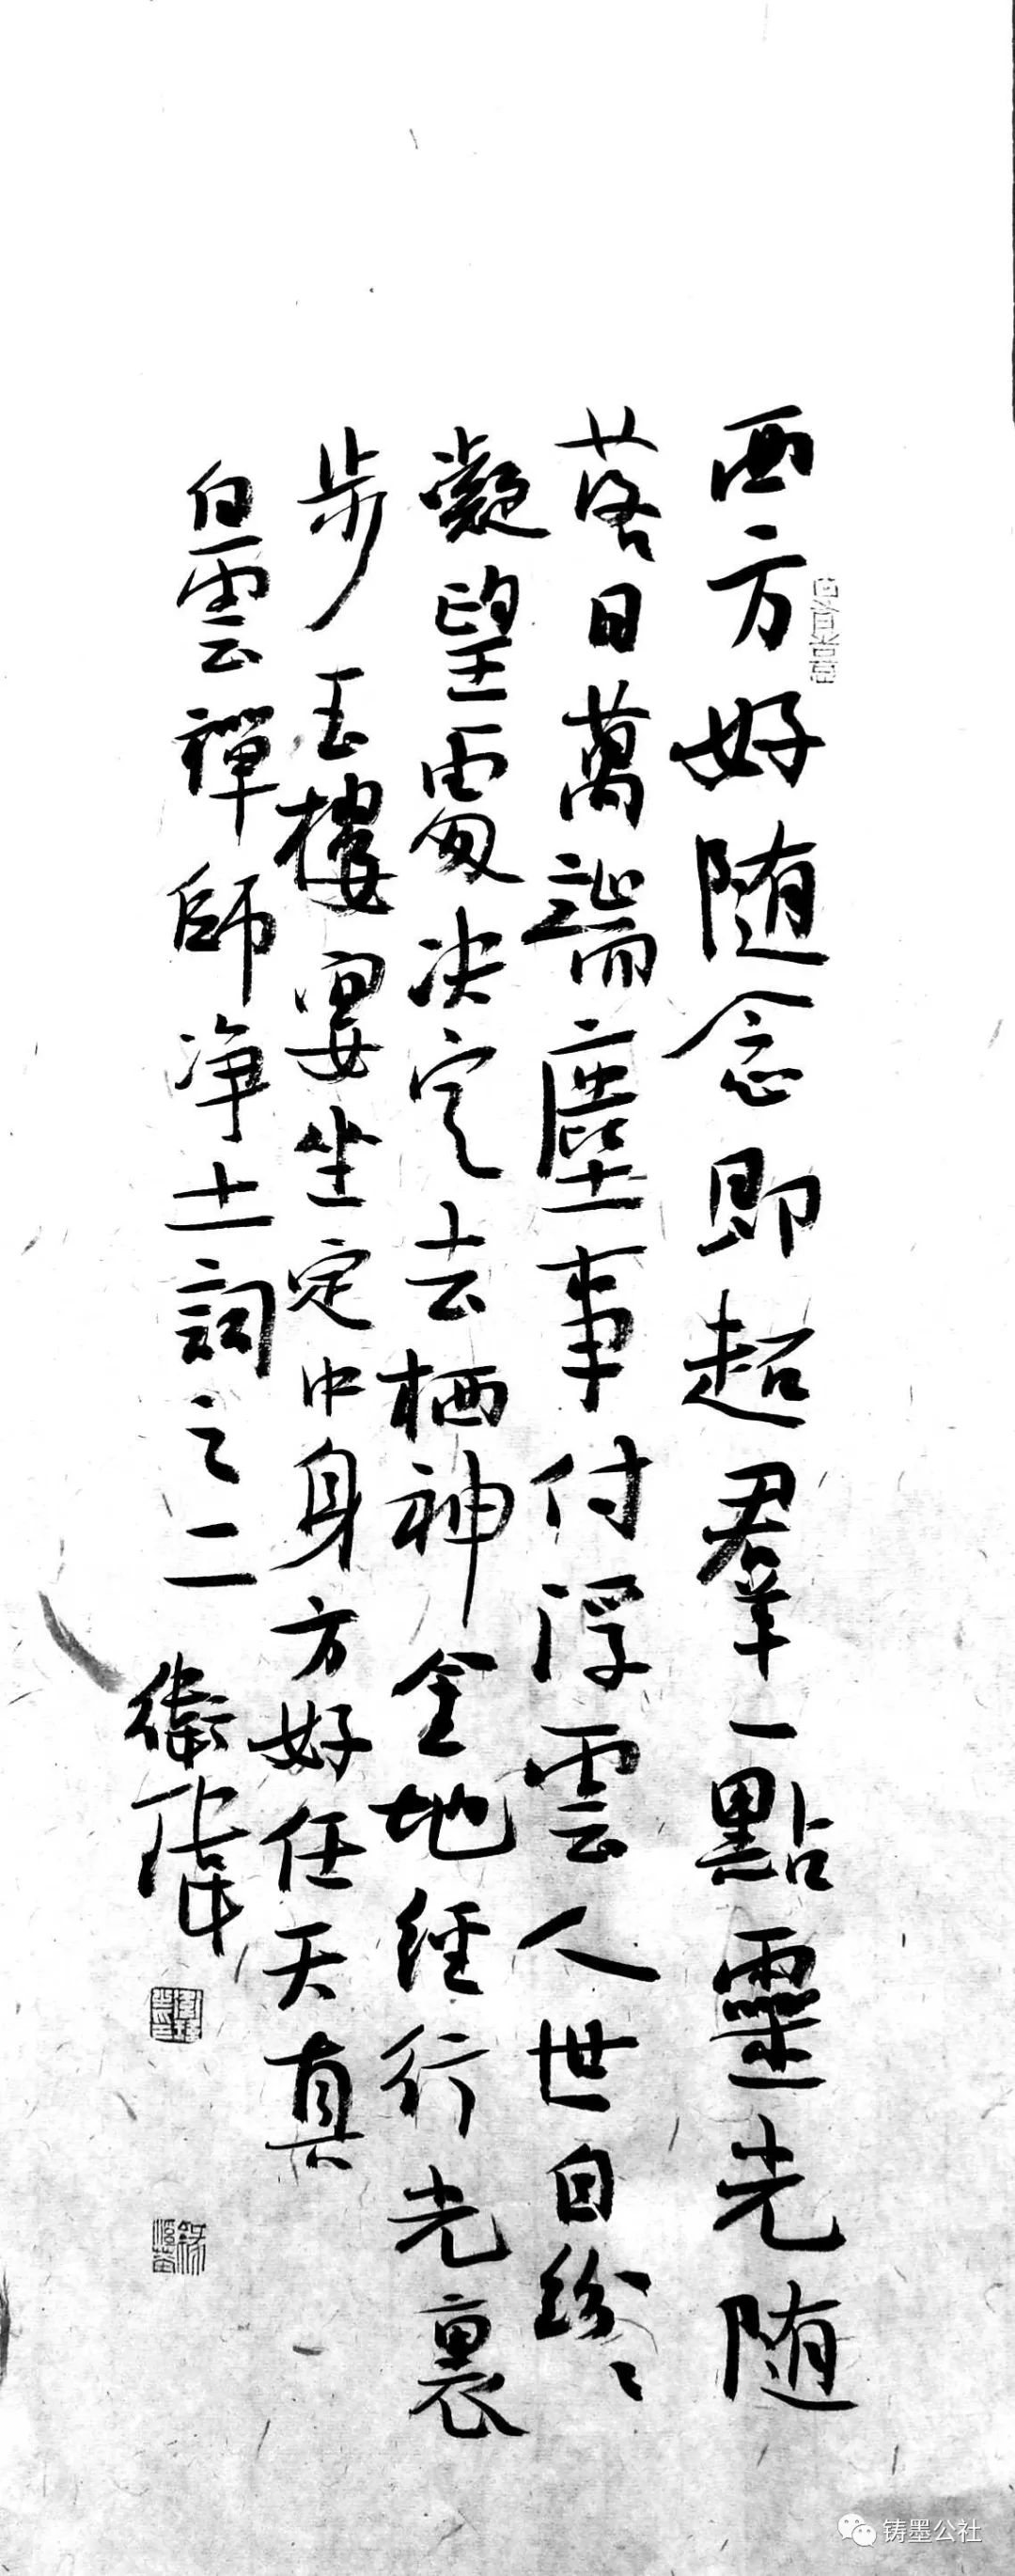 西方好随念即超羣一點靈光随
落日萬端塵事付浮雲人世自紛〻
凝望處决定去栖神金地經行光裏
步玉樓宴坐定中身方好任天真
白雲禪師净土詞之二
铸墨公社